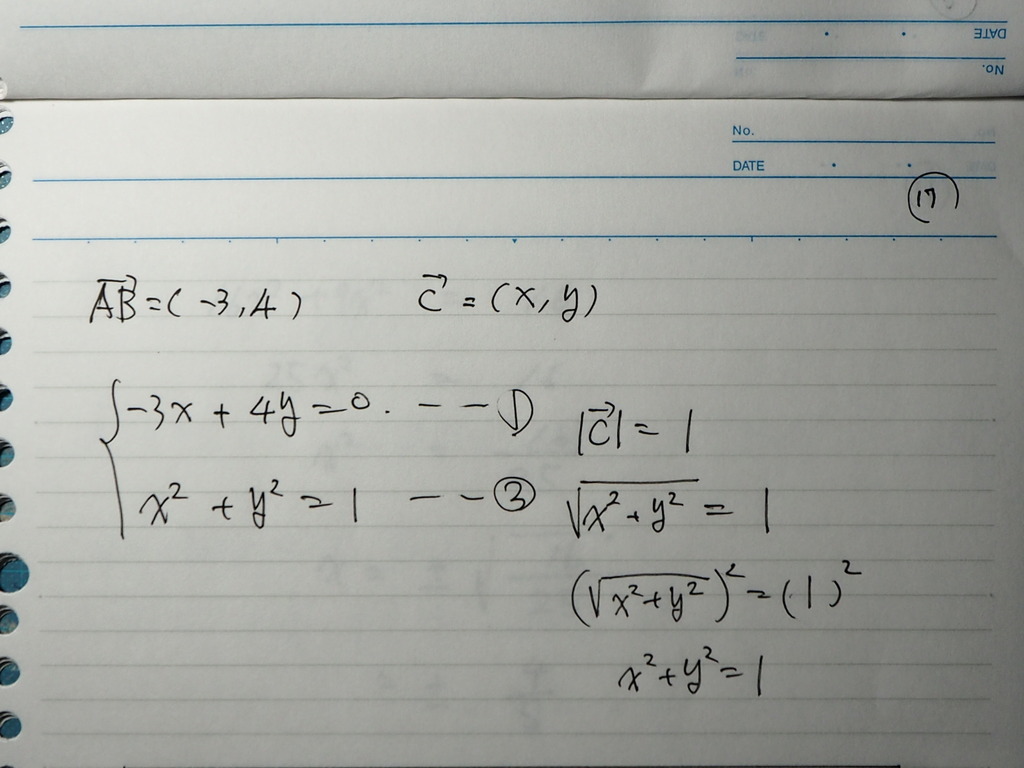 DATE
No.
No.
DATE
⑰
$\overrightarrow{AB}=(-3,4)$ $\vec{C}=(x,y)$
$-3x+4y=0.$ -- ①
$x^2+y^2=1$ -- ②
$|\vec{C}|=1$
$\sqrt{x^2+y^2}=1$
$(\sqrt{x^2+y^2})^2=(1)^2$
$x^2+y^2=1$